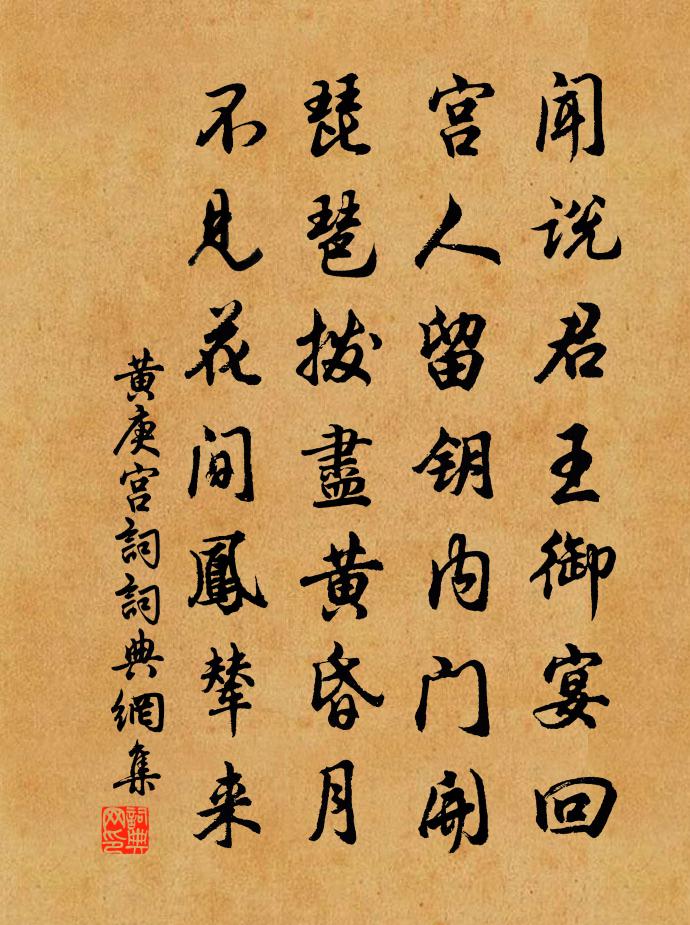 闻说君王御宴回
宫人留钥内门开
琵琶拨盡黄昏月
不见花间鳳辇来
黄庚宫詞詞典網集
詞典网印